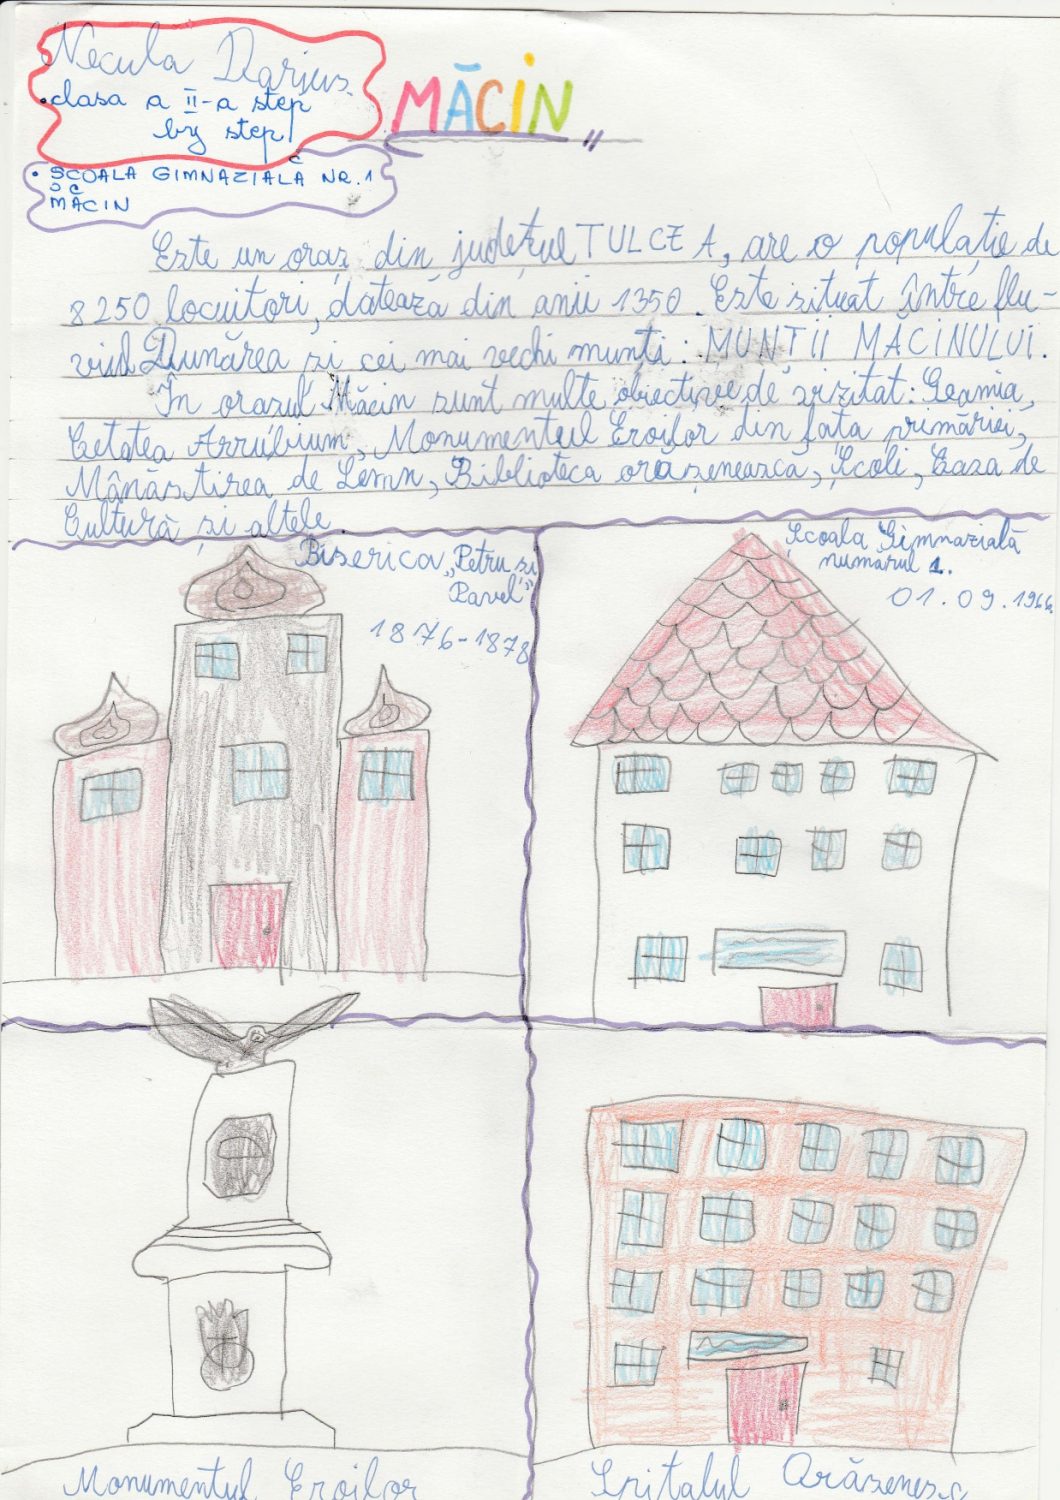 Necula Darius
• clasa a II-a step
by step
MĂCIN
"
• ȘCOALA GIMNAZIALĂ NR. 1
MĂCIN
Este un oraș din județul TULCEA, are o populație de
8250 locuitori, datează din anii 1350. Este situat între flu-
viul Dunărea și cei mai vechi munți: MUNȚII MĂCINULUI.
În orașul Măcin sunt multe obiective de vizitat: Geamia,
Cetatea Arrubium, Monumentul Eroilor din fața primăriei,
Mănăstirea de Lemn, Biblioteca orașenească, Școli, Casa de
Cultură și altele.
Biserica „Petru și
Pavel”
1876-1878
Școala Gimnazială
numărul 1.
01.09.1966
Monumentul Eroilor
Spitalul Orășenesc